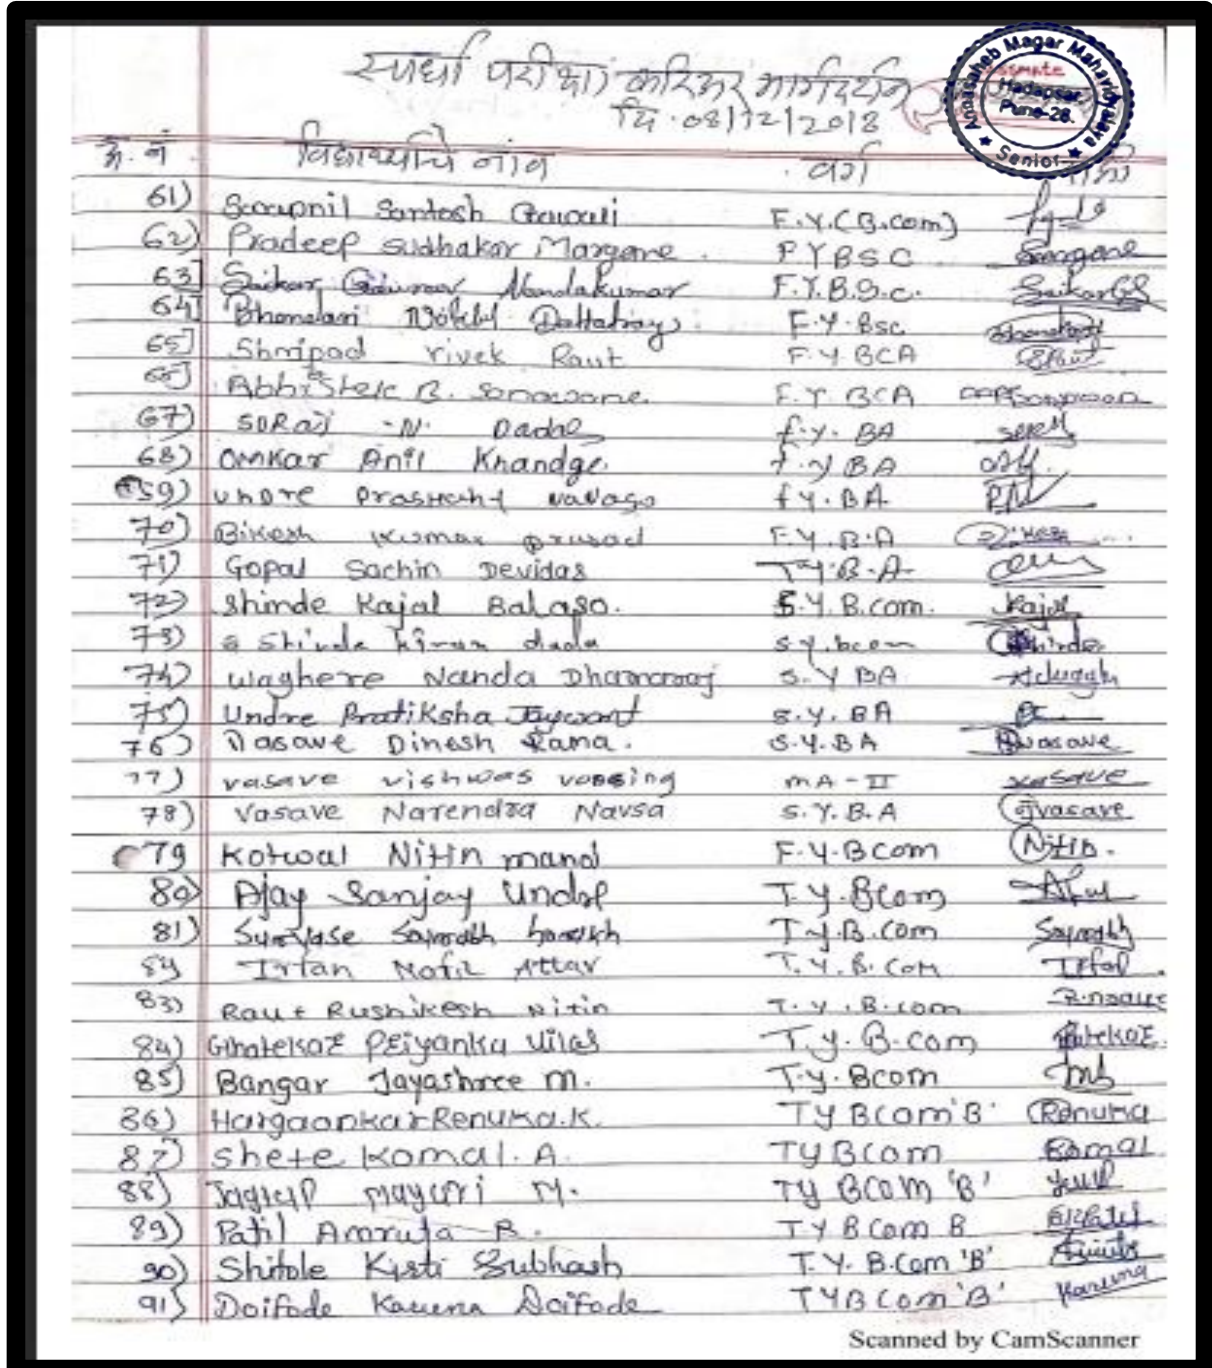 स्पर्धा परीक्षा करिअर मार्गदर्शन
दि. 08/12/2018
Annasaheb Magar Mahavidyalaya
classmate
Hadapsar,
Pune-28.
Senior
अ. नं. विद्यार्थ्याचे नांव वर्ग सही
61) Swapnil Santosh Gawali F.Y.(B.com)
62) Pradeep Sudhakar Margane. F.Y BSC Smargane
63] Saikar Nandakumar F.Y.B.S.c. SaikarGS
64] Dattatray F.Y.Bsc
65] Shripad Vivek Raut F.Y BCA SRaut
66] Abhishek B. Sonawane F.Y. BCA
67) SURaj .N. Dadal f.y. BA
68) OMKar Anil Khandge. f.y BA
69) undre Prashant f y. BA
70) Bikesh Kumar prasad F.Y.B.A Bikesh
71) Gopal Sachin Devidas T.Y.B.A-
72) Shinde Kajal Balaso. S.Y.B.com. Kajal
73) Shinde kiran dada s.y.bcom Shinde
74) waghere Nanda Dhanaraj S.Y BA
75) Undre Pratiksha Jaywant S.Y. BA
76) Vasave Dinesh Rama. S.Y.BA Dvasave
77) vasave vishwas vossing MA-II vasave
78) Vasave Narendra Navsa S.Y.B.A Nvasave
79 Kotwal Nitin manoj F.Y.BCom Nitin.
80) Ajay Sanjay Undre T.Y.Bcom
81) Suryase Saurabh T.Y.B.com Saurabh
Irfan Attar T.Y.B.Com Irfan
83) Raut Rushikesh Nitin T.Y.B.com
84) Ghatekar Priyanka Vilas T.y. B.com Ghatekar.
85) Bangar Jayashree M. T.y.Bcom
86) Hargaonkar Renuka.K. TYBcom 'B' Renuka
87) Shete Komal. A. TYBcom Komal
88) Jagtap Mayuri M. TY BCOM 'B'
89) Patil Amruta B. T.Y BCom B
90) Shitole Kirti Subhash T.Y. B.Com 'B'
91) Doifode Karuna Doifode TYBcom 'B' Karuna
Scanned by CamScanner